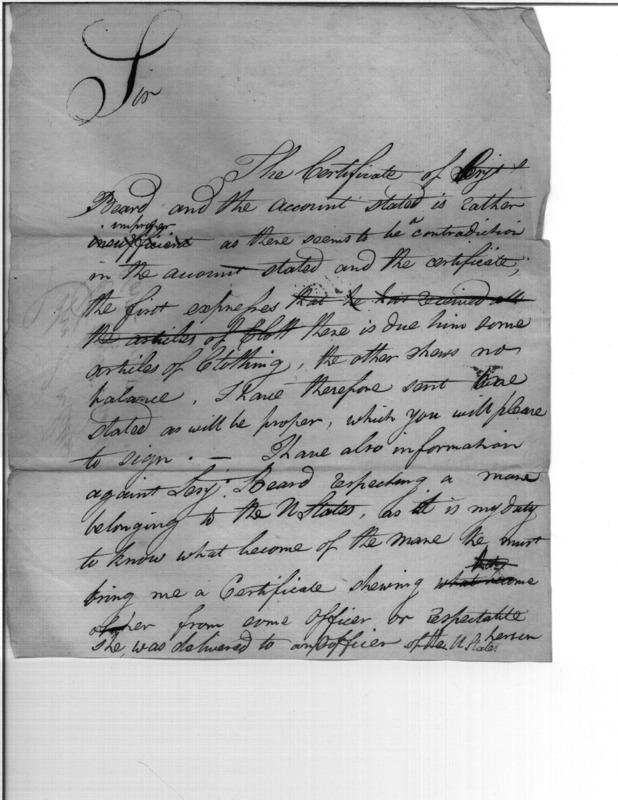 Sir
The Certificate of Serj.t
Beard and the account stated is rather
improper
insufficient as there seems to be a contradiction
in the account stated and the certificate,
the first expresses that he has received all
the articles of Cloth there is due him some
articles of Clothing, the other shews no
balance, I have therefore sent
stated as will be proper, which you will please
to sign. — I have also information
against Serj.t Beard respecting a mare
belonging to the U States, as it is my duty
to know what become of the mare he must
bring me a Certificate shewing what become
of her from some officer or respectable
she was delivered to an officer of the U States